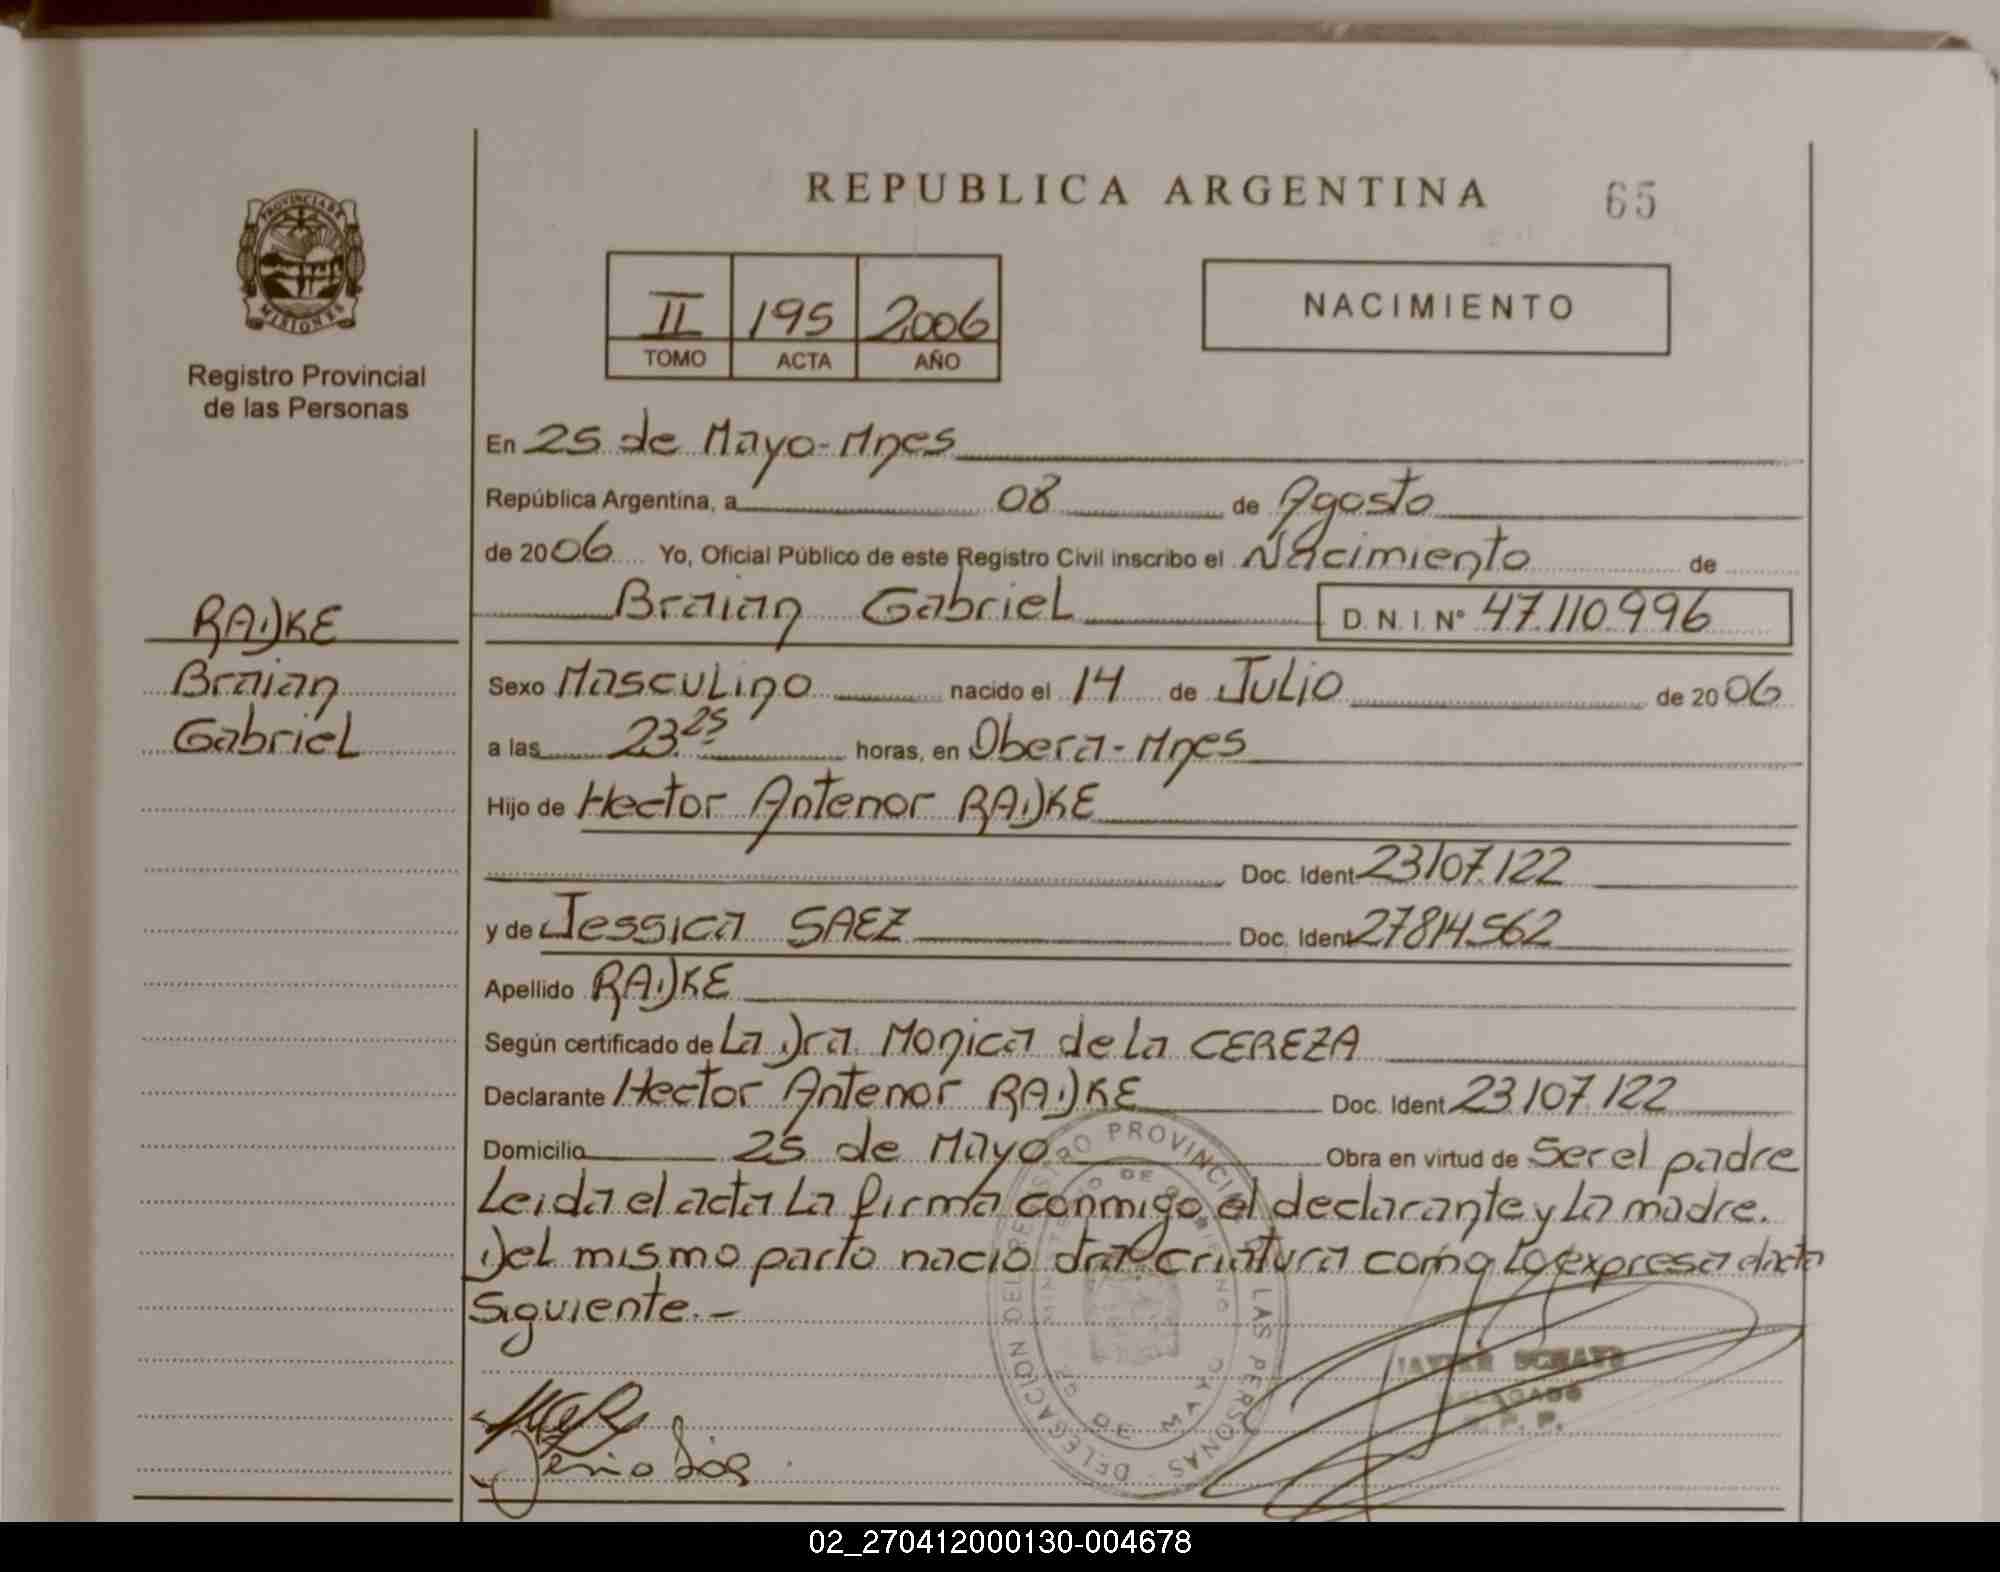 PROVINCIA DE
MISIONES
Registro Provincial
de las Personas
REPUBLICA ARGENTINA 65
II 195 2006
TOMO ACTA AÑO
NACIMIENTO
En 25 de Mayo-Mnes
República Argentina, a 08 de Agosto
de 2006 Yo, Oficial Público de este Registro Civil inscribo el Nacimiento de
Braian Gabriel D. N. I. Nº 47.110.996
RADKE
Braian
Gabriel
Sexo Masculino nacido el 14 de Julio de 2006
a las 23.25 horas, en Obera-Mnes
Hijo de Hector Antenor RADKE
Doc. Ident 23.107.122
y de Jessica SAEZ Doc. Ident 27814.562
Apellido RADKE
Según certificado de La Dra. Monica de la CEREZA
Declarante Hector Antenor RADKE Doc. Ident 23.107.122
Domicilio 25 de Mayo Obra en virtud de Ser el padre
Leida el acta La firma conmigo el declarante y La madre.
Del mismo parto nacio otra criatura como lo expresa el acta
Siguiente.-
DELEGACION DEL REGISTRO PROVINCIAL DE LAS PERSONAS
MINISTERIO DE GOBIERNO
25 DE MAYO
JAVIER
DELEGADO
R. P. P.
02_270412000130-004678